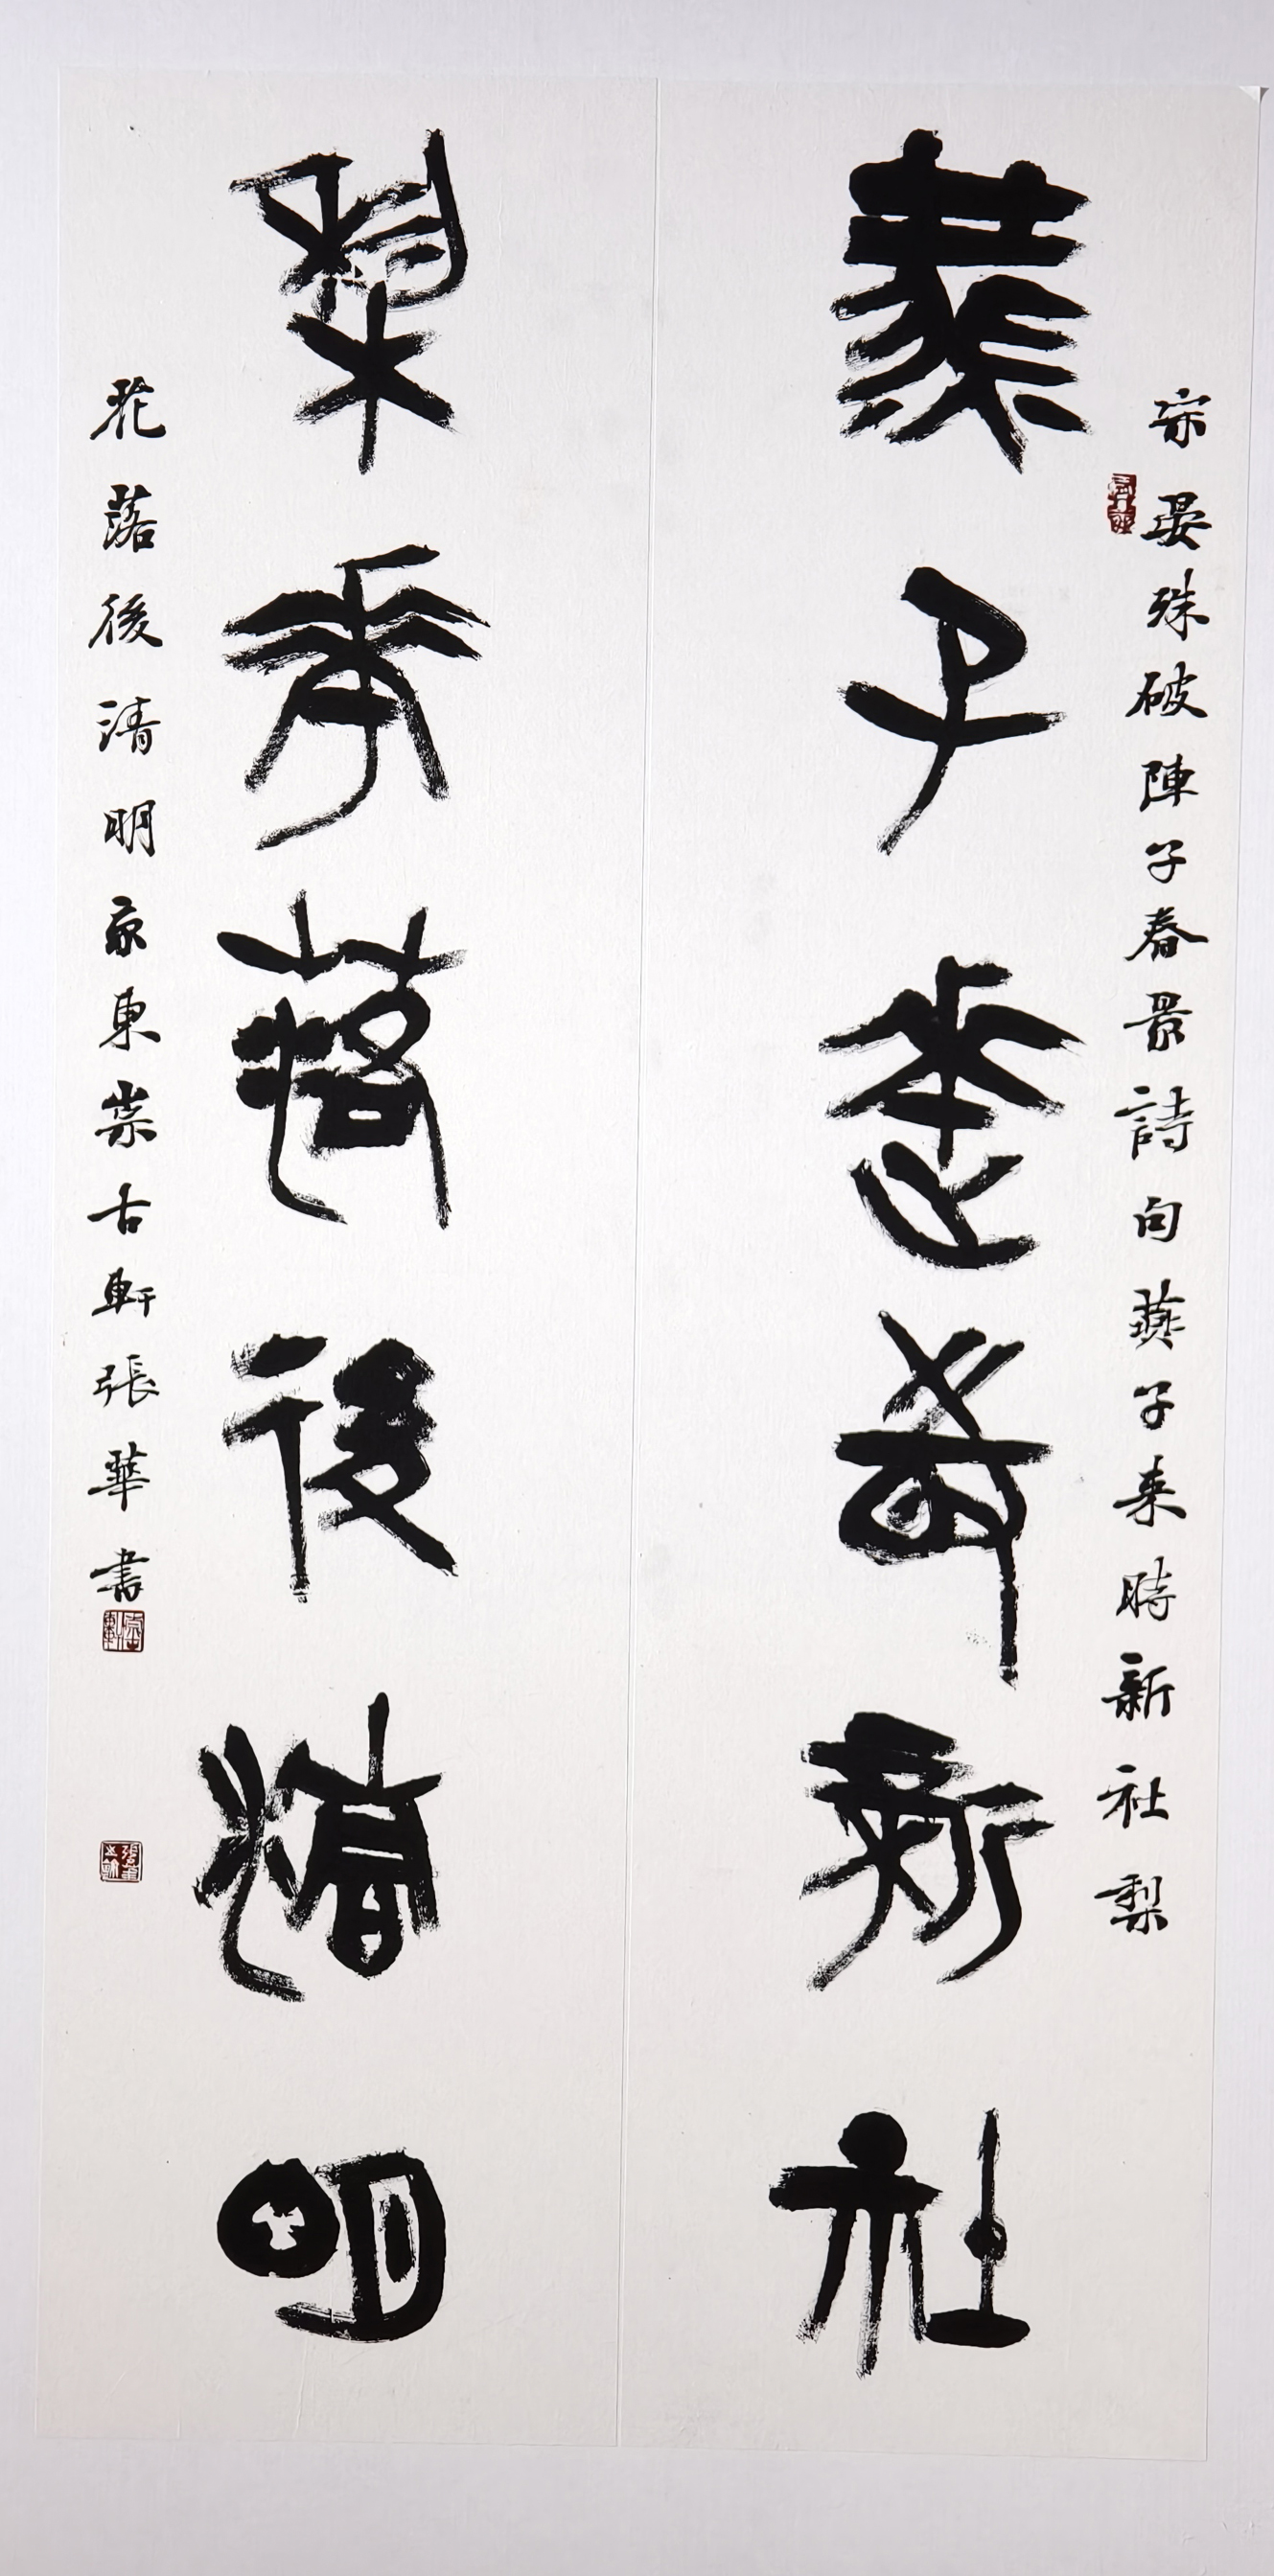 宋晏殊破陣子春景詩句燕子来時新社梨
燕子來時新社
梨花落後清明
花落後清明京東崇古軒張華書